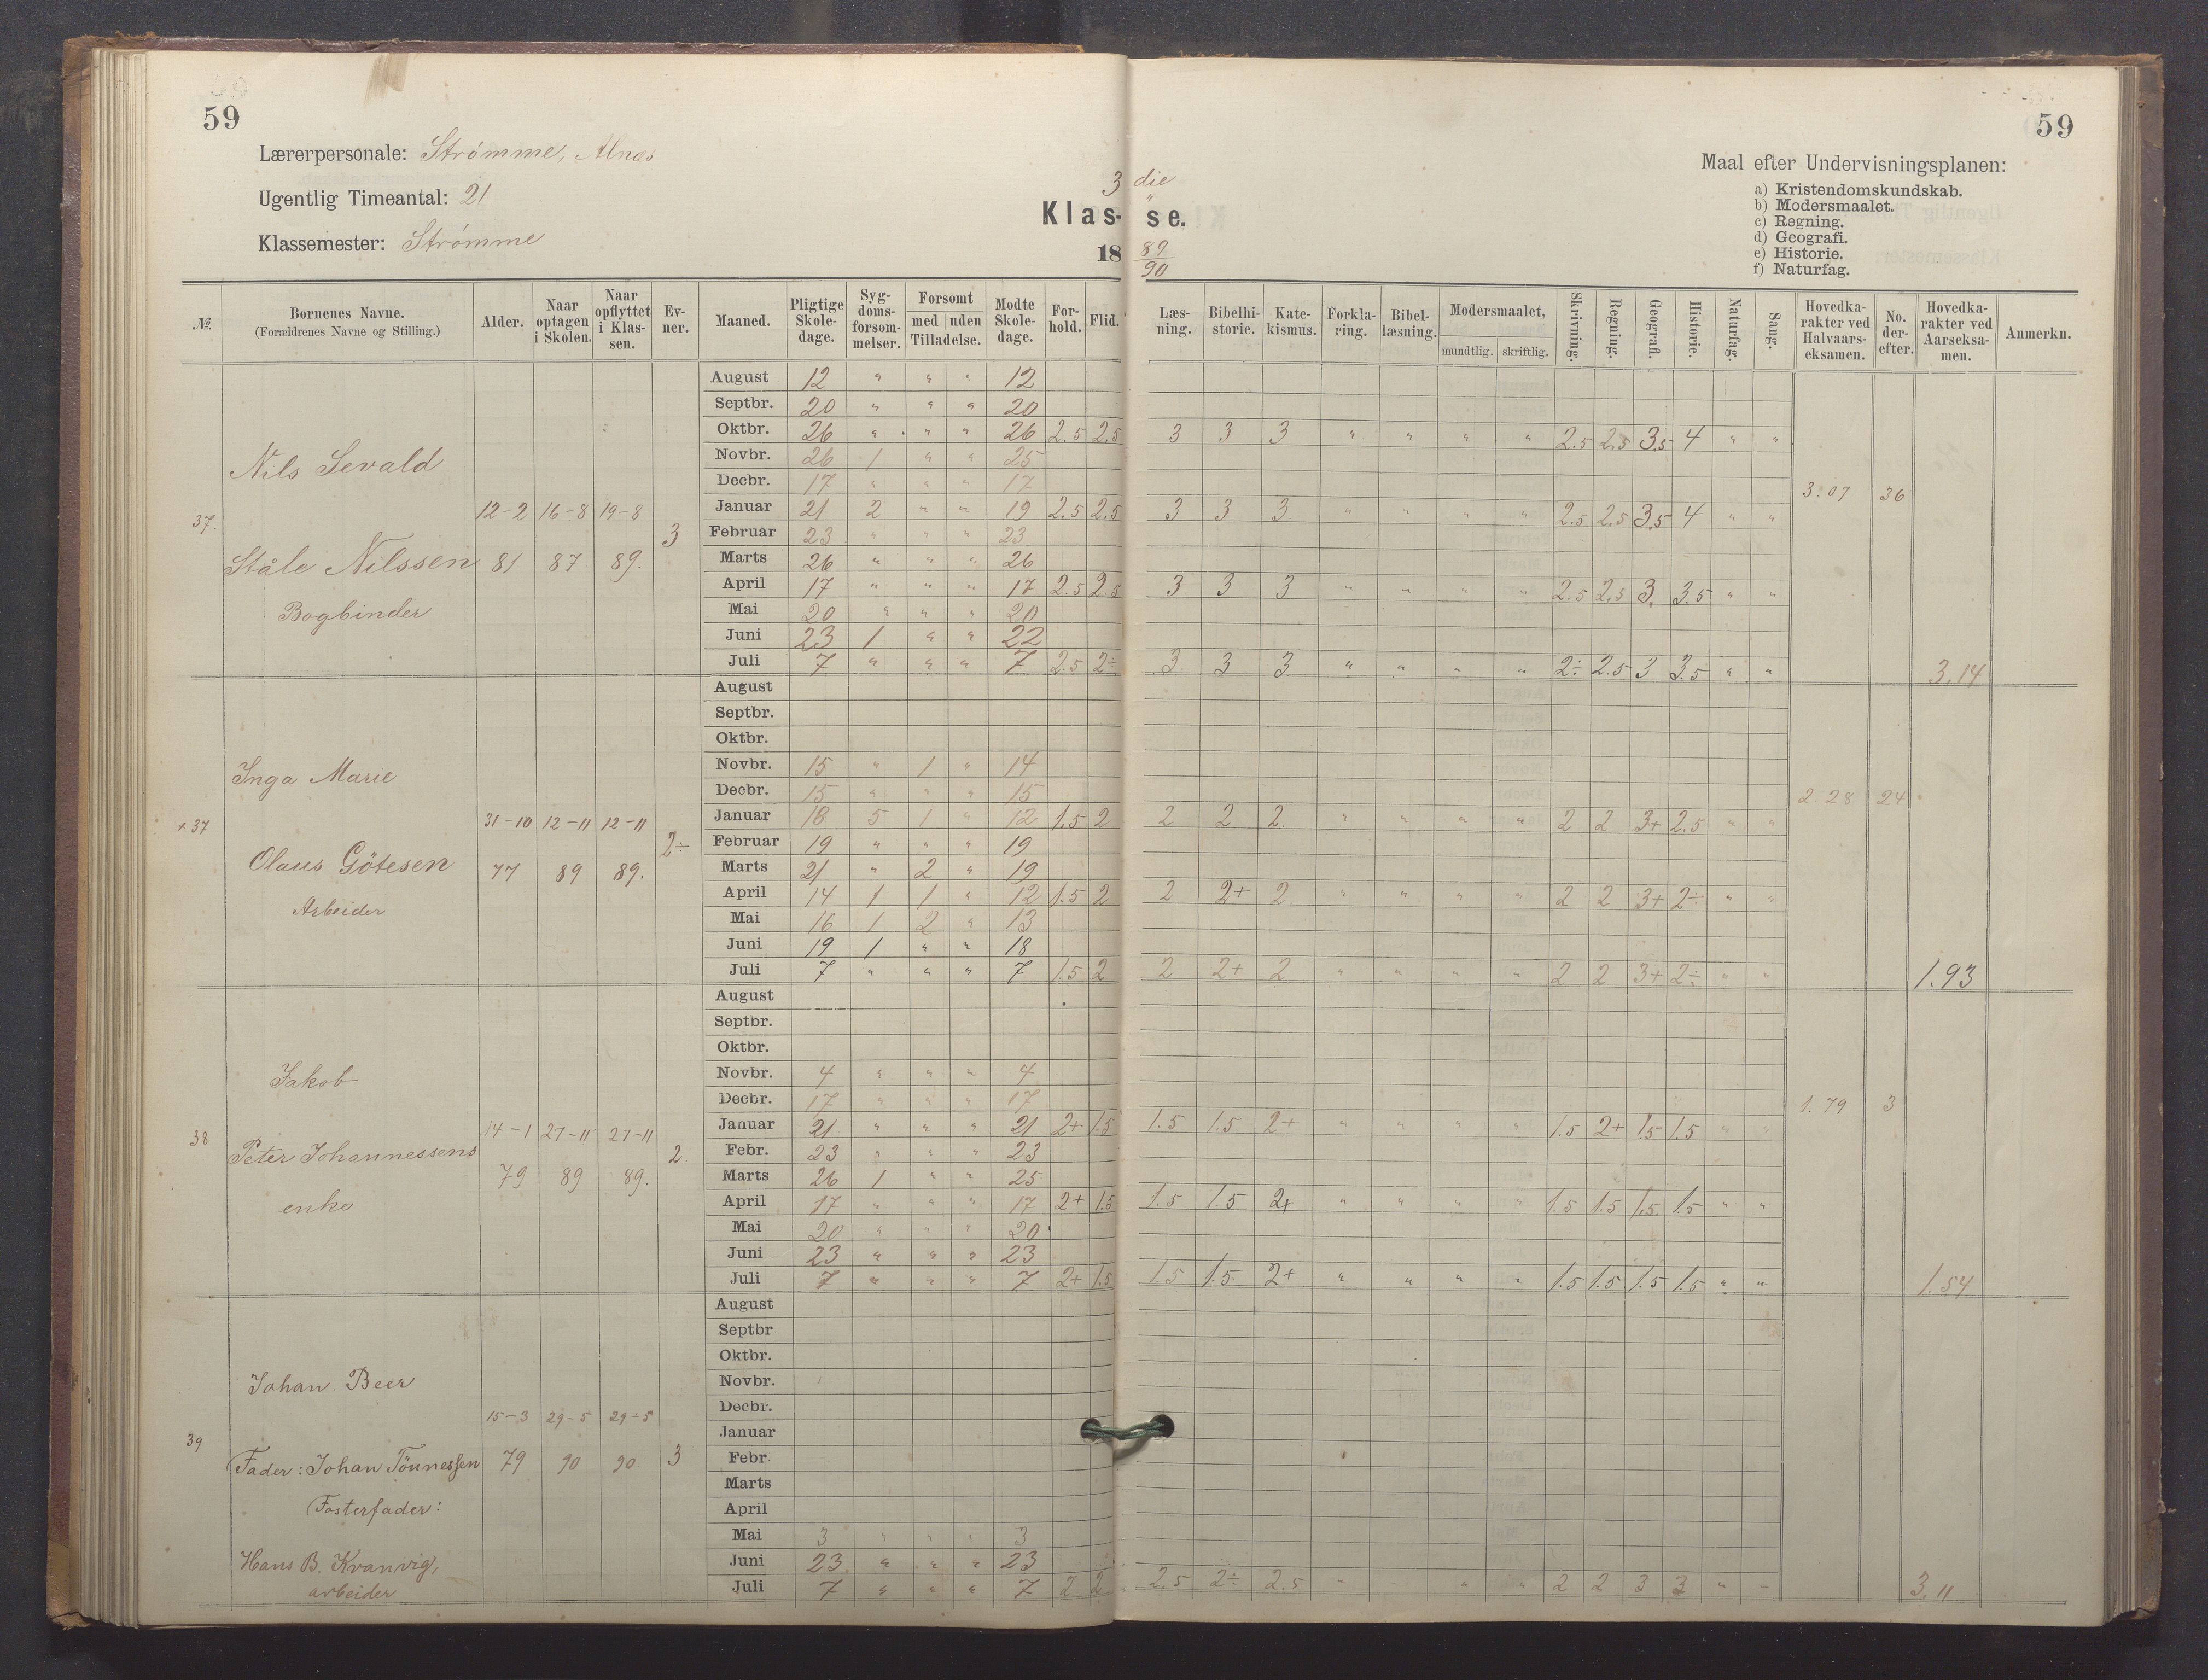 59
59
Lærerpersonale: Strömme, Alnæs
Ugentlig Timeantal: 21
Klassemester: Strömme
3 die
Klas- se.
18 89/90
Maal efter Undervisningsplanen:
a) Kristendomskundskab.
b) Modersmaalet.
c) Regning.
d) Geografi.
e) Historie.
f) Naturfag.
№. Børnenes Navne. (Forældrenes Navne og Stilling.) Alder. Naar optagen i Skolen. Naar opflyttet i Klassen. Evner. Maaned. Pligtige Skoledage. Sygdomsforsømmelser. Forsømt med | uden Tilladelse. Mødte Skoledage. Forhold. Flid. Læsning. Bibelhistorie. Katekismus. Forklaring. Bibellæsning. Modersmaalet, mundtlig. skriftlig. Skrivning. Regning. Geografi. Historie. Naturfag. Sang. Hovedkarakter ved Halvaarseksamen. No. derefter. Hovedkarakter ved Aarseksamen. Anmerkn.
37.
Nils Sevald
Ståle Nilssen
Bogbinder
12-2 81
16-8 87
19-8 89.
3
August 12 " " " 12
Septbr. 20 " " " 20
Oktbr. 26 " " " 26 2.5 2.5 3 3 3 " " " " 2.5 2.5 3.5 4 " "
Novbr. 26 1 " " 25
Decbr. 17 " " " 17
Januar 21 2 " " 19 2.5 2.5 3 3 3 " " " " 2.5 2.5 3.5 4 " " 3.07 36
Februar 23 " " " 23
Marts 26 " " " 26
April 17 " " " 17 2.5 2.5 3 3 3 " " " " 2.5 2.5 3. 3.5 " "
Mai 20 " " " 20
Juni 23 1 " " 22
Juli 7 " " " 7 2.5 2÷ 3. 3 3 " " " " 2÷ 2.5 3 3.5 " " 3.14
+ 37
Inga Marie
Olaus Götesen
Arbeider
31-10 77
12-11 89
12-11 89.
2÷
August
Septbr.
Oktbr.
Novbr. 15 " 1 " 14
Decbr. 15 " " " 15
Januar 18 5 1 " 12 1.5 2 2 2 2. " " " " 2 2 3+ 2.5 " " 2.28 24
Februar 19 " " " 19
Marts 21 " 2 " 19
April 14 1 1 " 12 1.5 2 2 2+ 2 " " " " 2 2 3+ 2÷ " "
Mai 16 1 2 " 13
Juni 19 1 " " 18
Juli 7 " " " 7 1.5 2 2 2+ 2 " " " " 2 2 3+ 2÷ " " 1.93
38
Jakob
Peter Johannessens
enke
14-1 79
27-11 89
27-11 89.
2.
August
Septbr.
Oktbr.
Novbr. 4 " " " 4
Decbr. 17 " " " 17
Januar 21 " " " 21 2+ 1.5 1.5 1.5 2+ " " " " 1.5 2+ 1.5 1.5 " " 1.79 3
Febr. 23 " " " 23
Marts 26 1 " " 25
April 17 " " " 17 2+ 1.5 1.5 1.5 2+ " " " " 1.5 1.5 1.5. 1.5 " "
Mai 20 " " " 20
Juni 23 " " " 23
Juli 7 " " " 7 2+ 1.5 1.5 1.5 2+ " " " " 1.5 1.5 1.5 1.5 " " 1.54
39
Johan Beer
Fader: Johan Tönnessen
Fosterfader:
Hans B. Kvanvig,
arbeider
15-3 79
29-5 90
29-5 90
3
August
Septbr
Oktbr.
Novbr.
Decbr.
Januar
Febr.
Marts
April
Mai 3 " " " 3
Juni 23 " " " 23
Juli 7 " " " 7 2 2 2.5 2÷ 2.5 " " " 2 2 3 3 " - 3.11